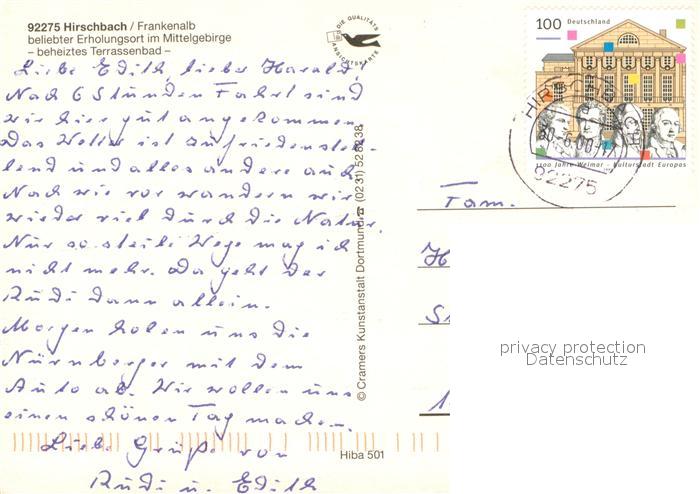 92275 Hirschbach / Frankenalb
beliebter Erholungsort im Mittelgebirge
– beheiztes Terrassenbad –
Liebe Edith, lieber Harald!
Nach 6 Stunden Fahrt sind
wir hier gut angekommen.
Das Wetter ist zufriedenstel-
lend und alles andere auch.
Nach wie vor wandern wir
wieder viel durch die Natur.
Nur so steile Wege mag ich
nicht mehr. Da geht der
Rudi dann allein.
Morgen holen uns die
Nürnberger mit dem
Auto ab. Wir wollen uns
einen schönen Tag machen.
Liebe Grüße von
Rudi u. Edith
© Cramers Kunstanstalt Dortmund ☎ (0231) 528238
Hiba 501
DIE QUALITÄTS
ANSICHTSKARTE
100 Deutschland
1100 Jahre Weimar – Kulturstadt Europas
92275
Fam.
H
privacy protection
Datenschutz